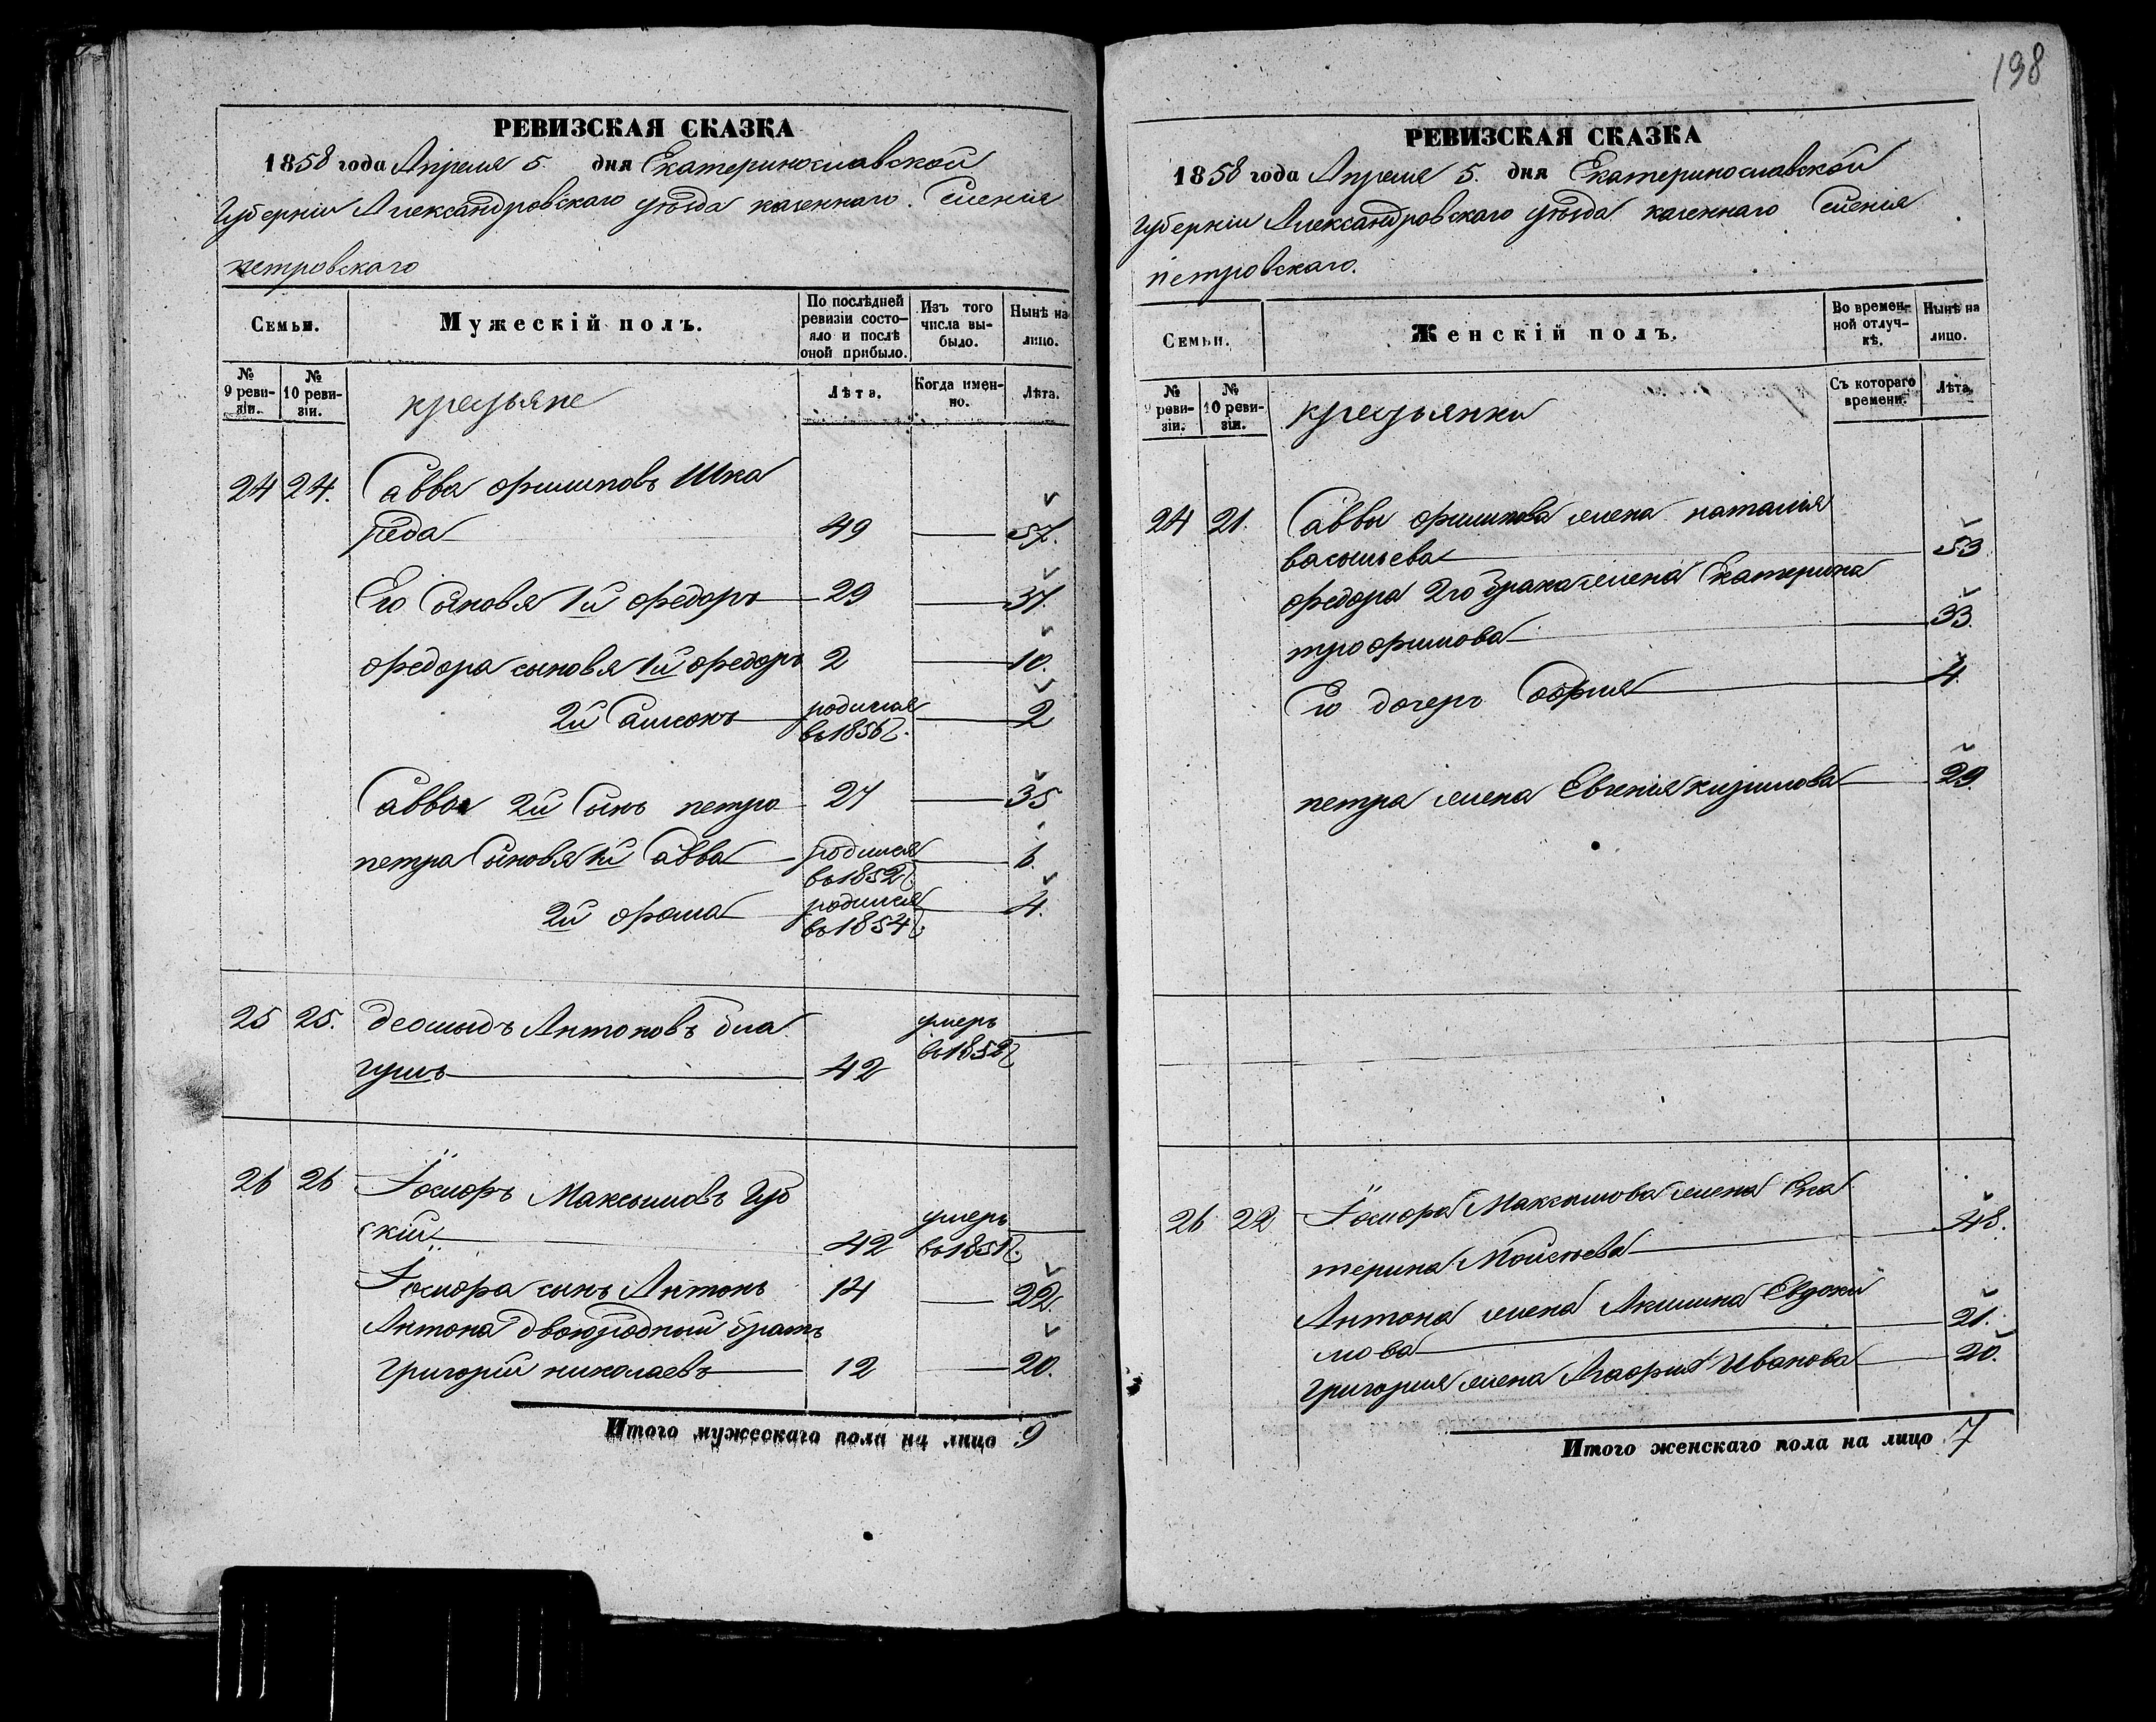 198
РЕВИЗСКАЯ СКАЗКА
1858 года Апреля 5. дня Екатеринославской
Губерніи Александровскаго уѣзда казеннаго Селенія
петровскаго
Семьи.
Мужескій полъ.
По послѣдней
ревизіи состо-
яло и послѣ
оной прибыло.
Изъ того
числа вы-
было.
Нынѣ на
лицо.
№
9 реви-
зіи.
№
10 реви-
зіи.
крестьяне
Лѣта.
Когда имен-
но.
Лѣта.
24 24. Савва филиповъ Шка
реда 49 57.
Его Сыновья 1й федоръ 29 37.
федора сыновья 1й федоръ 2 10.
2й Самсонъ родился 2
въ 1856 г.
Саввы 2й Сынъ петро 27 35
петра Сыновья 1й Савва родился 6.
въ 1852 г.
2й фома родился 4.
въ 1854 г.
25 25. Антоновъ бла умеръ
гушъ 42 въ 1852 г.
26 26 Іосифъ Максымовъ Губ умеръ
скій 42 въ 1851 г.
Іосифа сынъ Антонъ 14 22.
Антона двоюродный братъ
григорій николаевъ 12 20.
Итого мужескаго пола на лицо 9
РЕВИЗСКАЯ СКАЗКА
1858 года Апреля 5. дня Екатеринославской
Губерніи Александровскаго уѣзда казеннаго Селенія
петровскаго.
Семьи.
Женскій полъ.
Во времен-
ной отлуч-
кѣ.
Нынѣ на
лицо.
№
9 реви-
зіи.
№
10 реви-
зіи.
крестьянки
Съ котораго
времени.
Лѣта.
24 21. Саввы филипова жена наталія
васильева 53
федора 2го брака жена Екатерина
трофимова 33.
Его дочерь Софія 4.
петра жена Евгенія кирилова 29.
26 22 Іосифа Максимова жена Ека
терина Моисѣева 48.
Антона жена Акилина Евдоки
мова 21.
григорія жена Агафія Иванова 20.
Итого женскаго пола на лицо 7